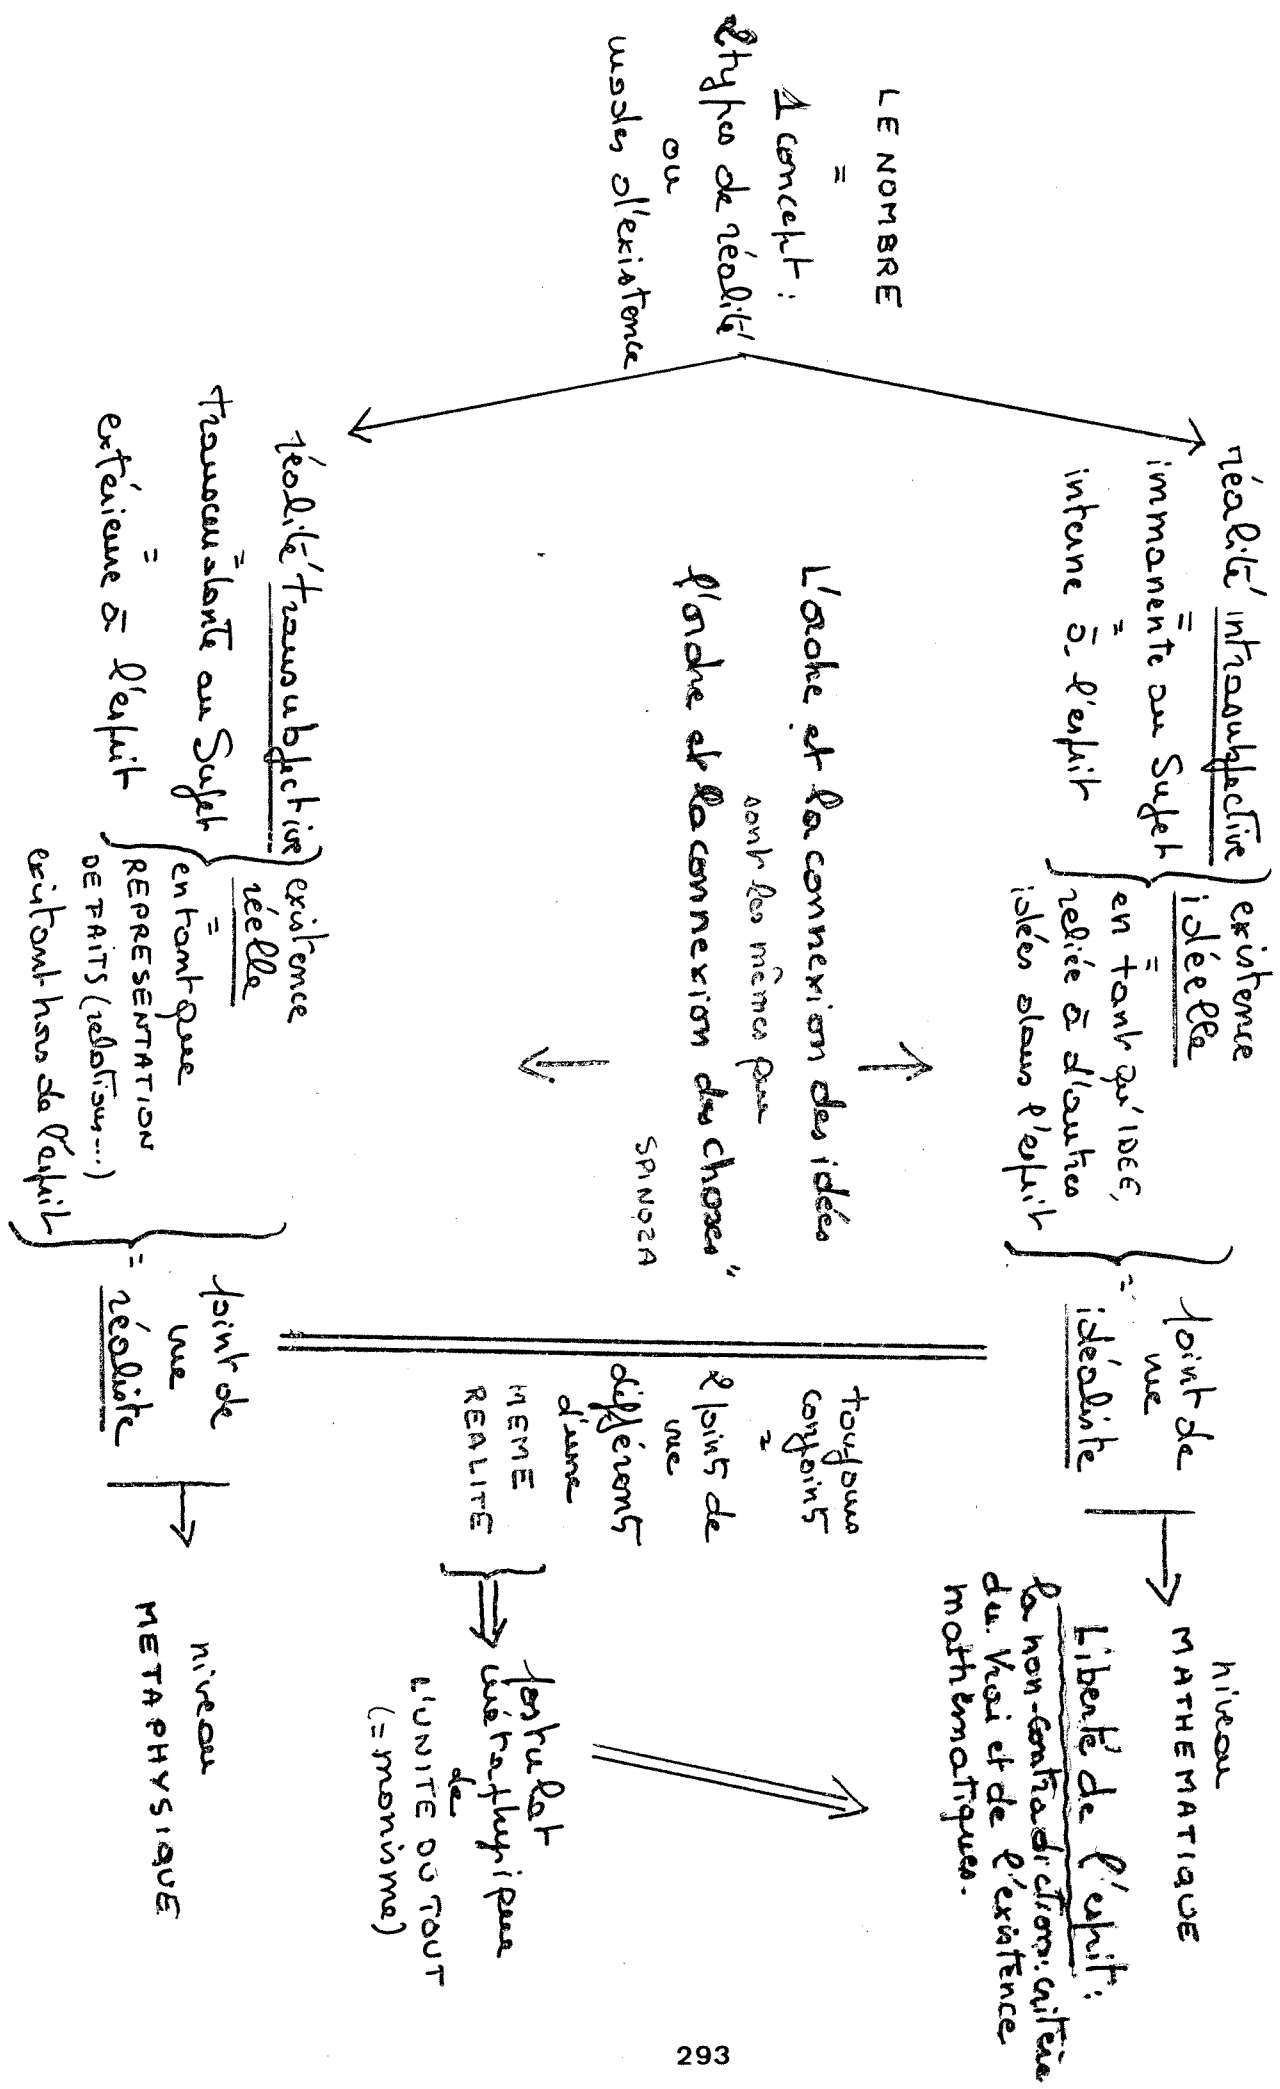 LE NOMBRE
=
1 concept :
2 types de réalité
ou
modes d'existence
réalité intrasubjective
=
immanente au Sujet
=
interne à l'esprit
existence
idéelle
=
en tant qu'IDEE,
reliée à d'autres
idées dans l'esprit
=
point de
vue
idéaliste
niveau
MATHEMATIQUE
Liberté de l'esprit :
la non-contradiction : critère
du Vrai et de l'existence
mathématiques.
L'ordre et la connexion des idées
sont les mêmes que
l'ordre et la connexion des choses"
SPINOZA
toujours
conjoints
=
2 points de
vue
différents
d'une
MEME
REALITE
postulat
métaphysique
de
L'UNITE DU TOUT
(= monisme)
réalité transubjective
=
transcendante au Sujet
=
extérieure à l'esprit
existence
réelle
=
en tant que
REPRESENTATION
DE FAITS (relations...)
existant hors de l'esprit
=
point de
vue
réaliste
niveau
METAPHYSIQUE
293